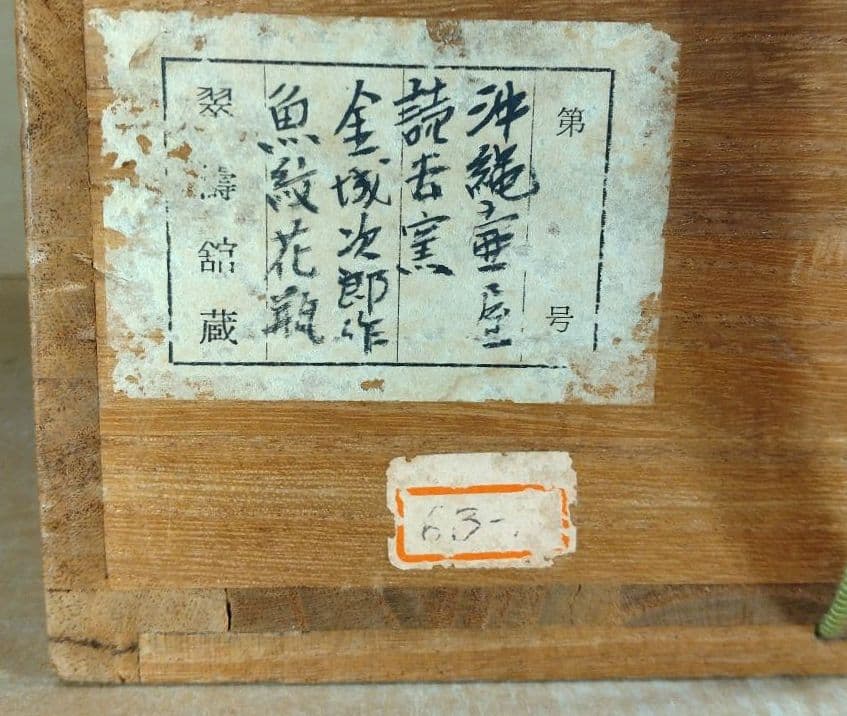 第 号
沖縄壺屋
読谷窯
金城次郎作
魚紋花瓶
翠濤舘蔵
63-